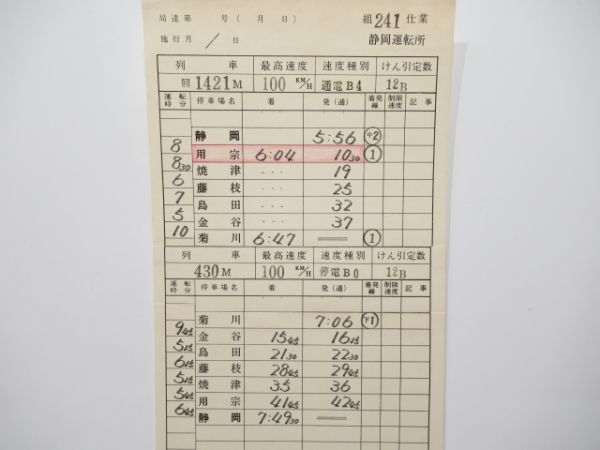 局達第 号(月 日) 組241仕業
施行月 / 日 静岡運転所
列車 最高速度 速度種別 けん引定数
回1421M 100KM/H 通電B4 12B
運転時分 停車場名 着 発(通) 着発線 制限速度 記事
静岡 5:56
8 用宗 6:04 10 30 ①
8 30 焼津 ・・・ 19
6 藤枝 ・・・ 25
7 島田 ・・・ 32
5 金谷 ・・・ 37
10 菊川 6:47 ═ ①
列車 最高速度 速度種別 けん引定数
430M 100KM/H 停電B0 12B
運転時分 停車場名 着 発(通) 着発線 制限速度 記事
菊川 7:06
9 45 金谷 15 45 16 15
5 15 島田 21 30 22 30
6 15 藤枝 28 45 29 45
5 15 焼津 35 36
5 45 用宗 41 45 42 45
6 45 静岡 7:49 30 ═